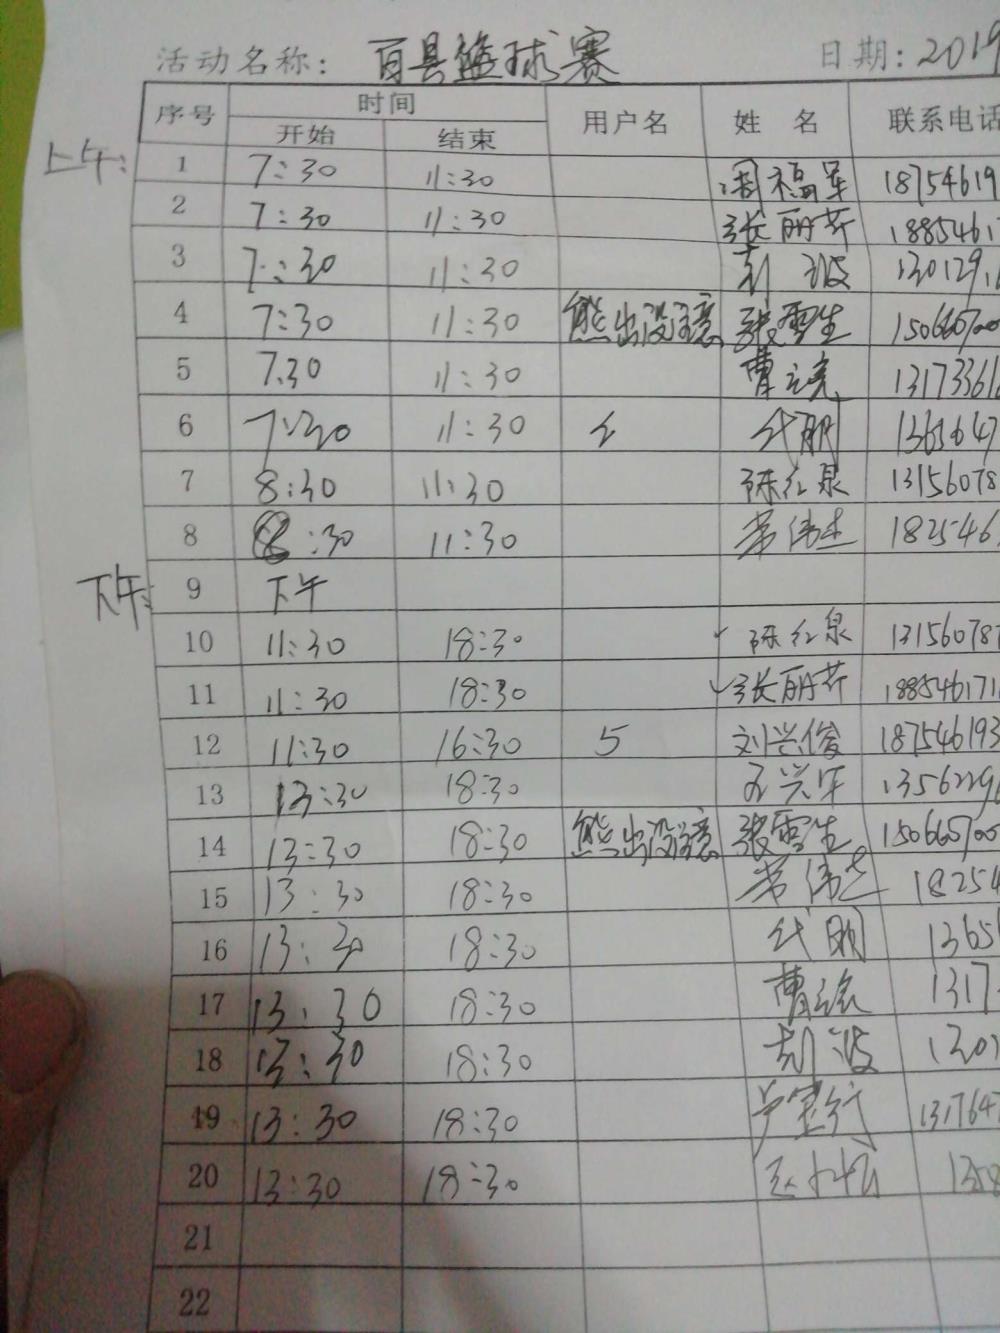 活动名称: 百县篮球赛 日期: 2019
序号 时间 用户名 姓 名 联系电话
开始 结束
上午: 1 7:30 11:30 周福军 18754619
2 7:30 11:30 张丽芹 1885461
3 7:30 11:30 刘波 130129
4 7:30 11:30 熊出没注意 张雪生 150665700
5 7.30 11:30 曹 13173361
6 7:30 11:30 代明 1365647
7 8:30 11:30 陈红泉 13156078
8 8:30 11:30 常伟杰 1825461
下午: 9 下午
10 11:30 18:30 陈红泉 13156078
11 11:30 18:30 张丽芹 188546171
12 11:30 16:30 5 刘兴俊 187546193
13 13:30 18:30 1356229
14 13:30 18:30 熊出没注意 张雪生 150665700
15 13:30 18:30 常伟杰 18254
16 13:30 18:30 代明 1365
17 13:30 18:30 曹 1317
18 13:30 18:30 刘波 1301
19 13:30 18:30 131764
20 13:30 18:30
21
22